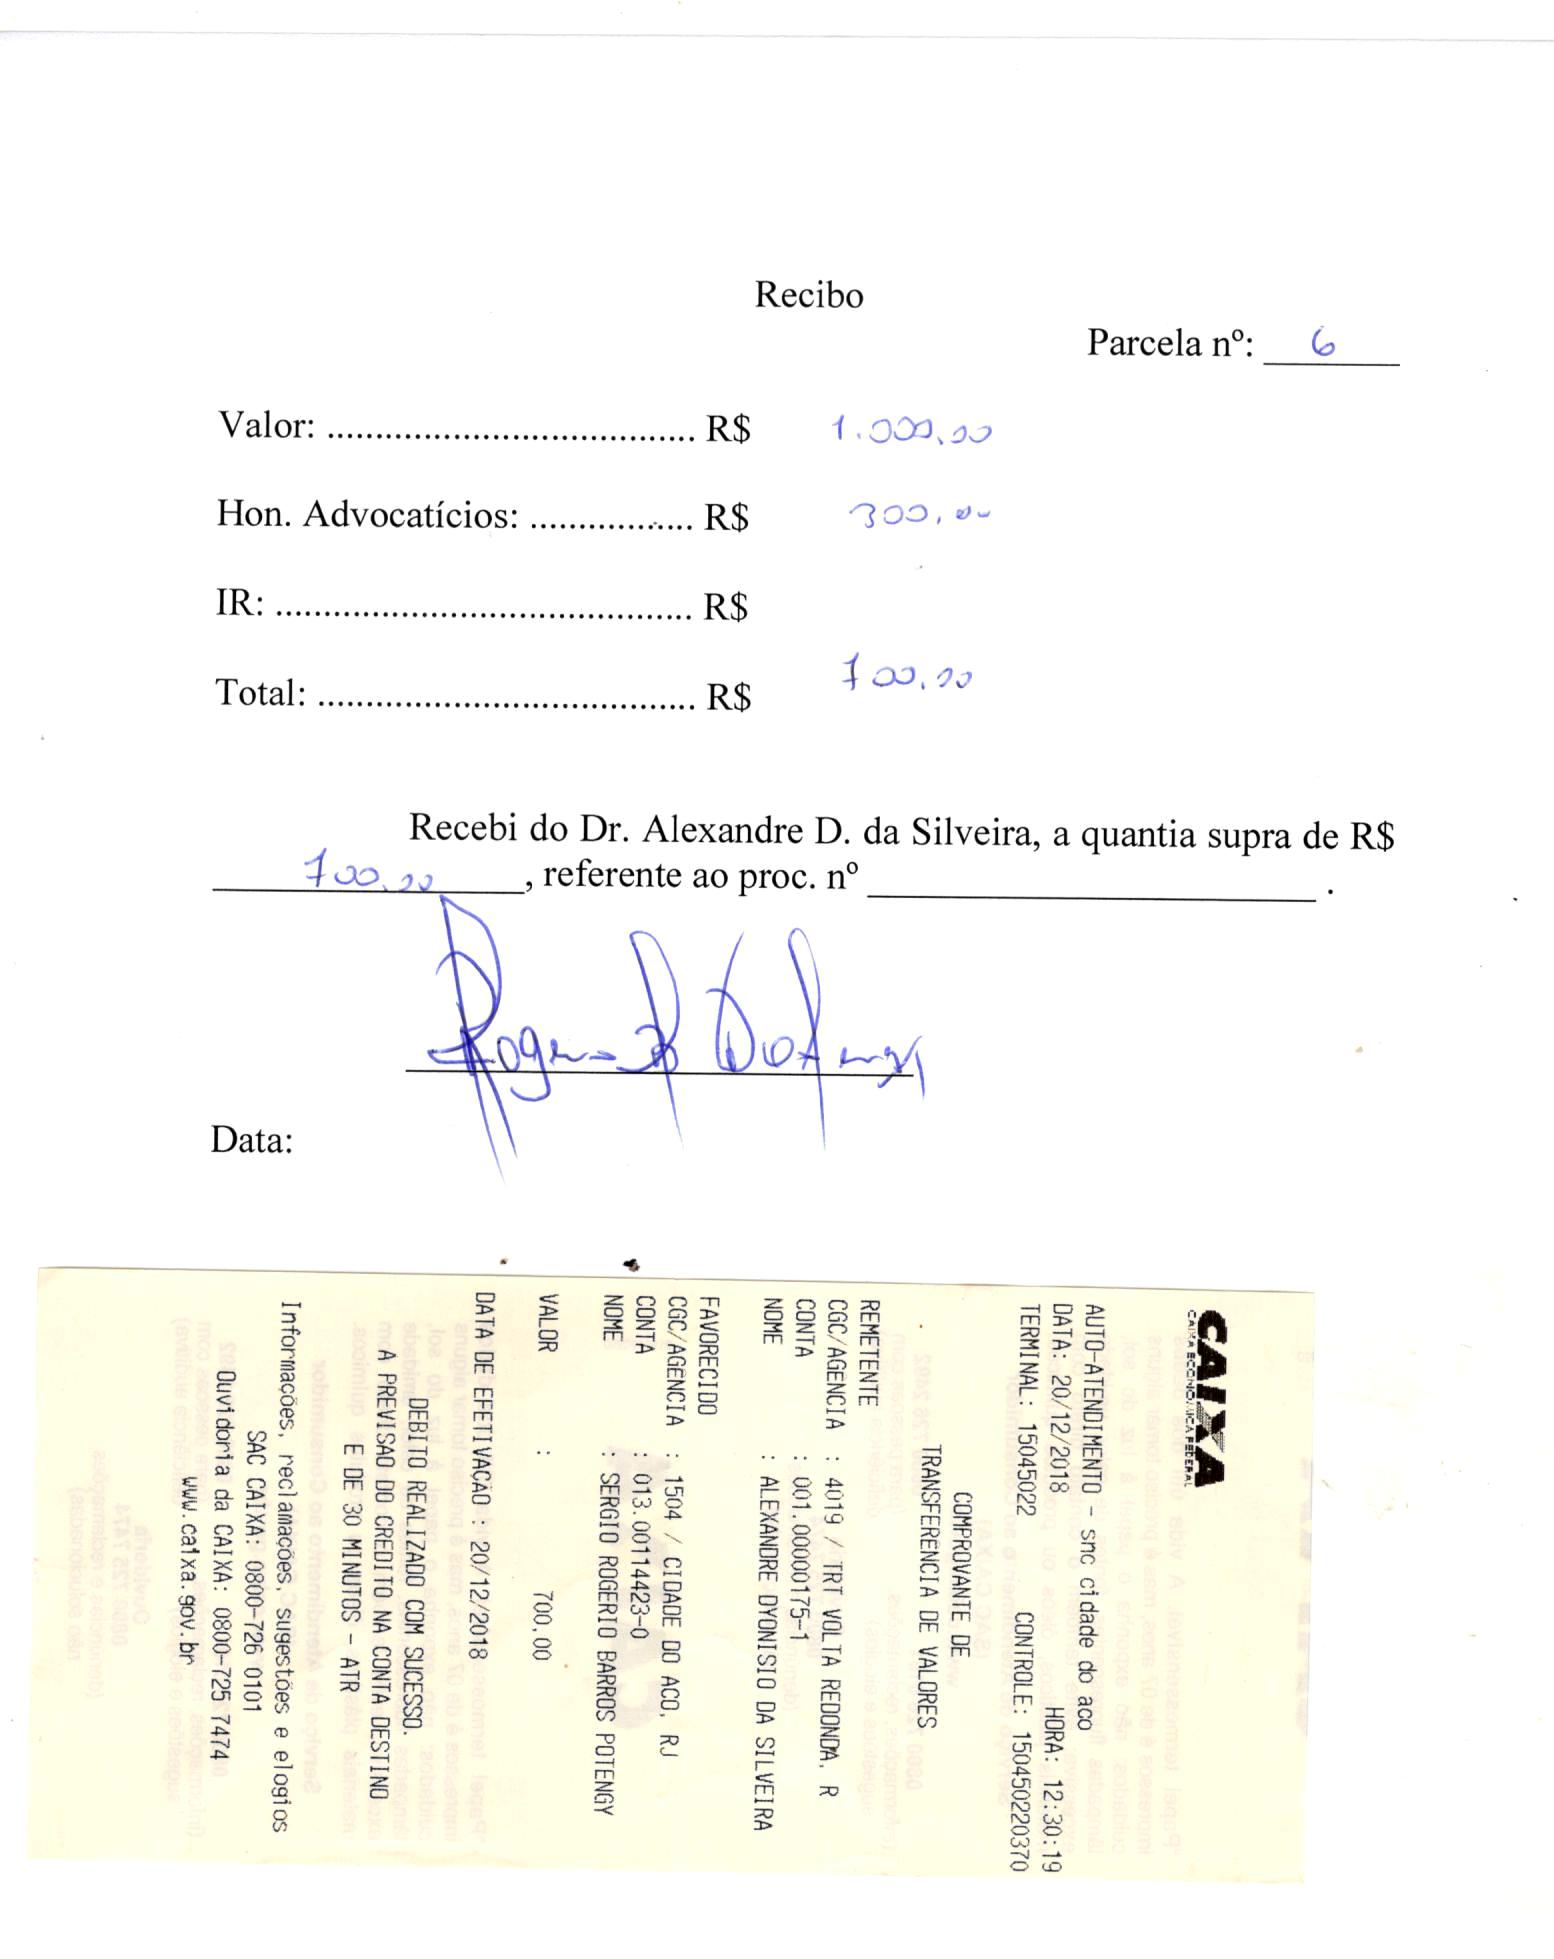 Recibo
Parcela nº: 6
Valor: ...................................... R$ 1.000,00
Hon. Advocatícios: ................. R$ 300,00
IR: ........................................... R$
Total: ....................................... R$ 700,00
Recebi do Dr. Alexandre D. da Silveira, a quantia supra de R$
700,00, referente ao proc. nº ______________________ .
Data:
CAIXA
CAIXA ECONOMICA FEDERAL
AUTO-ATENDIMENTO - snc cidade do aco
DATA: 20/12/2018 HORA: 12:30:19
TERMINAL: 15045022 CONTROLE: 150450220370
COMPROVANTE DE
TRANSFERENCIA DE VALORES
REMETENTE
CGC/AGENCIA : 4019 / TRT VOLTA REDONDA, R
CONTA : 001.00000175-1
NOME : ALEXANDRE DYONISIO DA SILVEIRA
FAVORECIDO
CGC/AGENCIA : 1504 / CIDADE DO ACO, RJ
CONTA : 013.00114423-0
NOME : SERGIO ROGERIO BARROS POTENGY
VALOR : 700,00
DATA DE EFETIVACAO : 20/12/2018
DEBITO REALIZADO COM SUCESSO.
A PREVISAO DO CREDITO NA CONTA DESTINO
E DE 30 MINUTOS - ATR
Informações, reclamações, sugestões e elogios
SAC CAIXA: 0800-726 0101
Ouvidoria da CAIXA: 0800-725 7474
www.caixa.gov.br